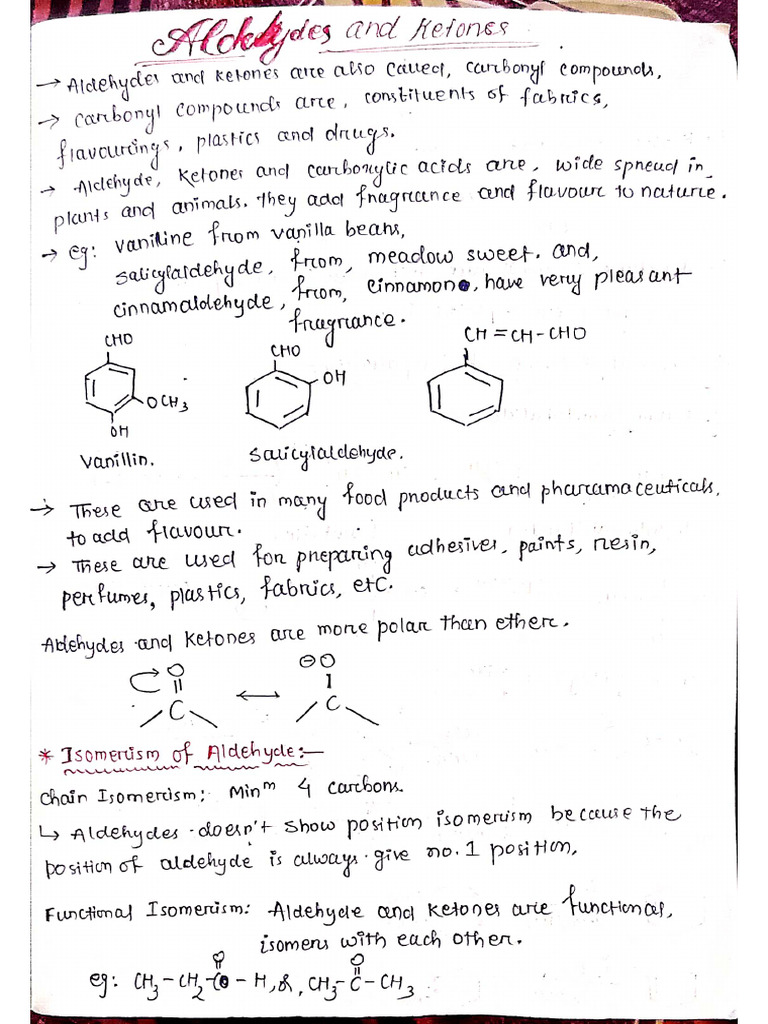 Aldehydes and Ketones
→ Aldehydes and Ketones are also called, carbonyl compounds,
→ Carbonyl compounds are, constituents of fabrics,
flavourings, plastics and drugs.
→ Aldehyde, Ketones and carboxylic acids are, wide spread in
plants and animals. They add fragrance and flavour to nature.
→ eg: vanilline from vanilla beans,
salicylaldehyde, from, meadow sweet. and,
cinnamaldehyde, from, cinnamon, have very pleasant
fragrance.
CHO CHO CH=CH-CHO
OH
OCH3
OH
Vanillin. Salicylaldehyde.
→ These are used in many food products and pharamaceuticals,
to add flavour.
→ These are used for preparing adhesives, paints, resin,
perfumes, plastics, fabrics, etc.
Aldehydes and Ketones are more polar than ether.
O ⊖O
C ⟷ C
* Isomerism of Aldehyde:-
Chain Isomerism: Minm 4 carbons.
↳ Aldehydes doesn't show position isomerism because the
position of aldehyde is always give no. 1 position,
Functional Isomerism: Aldehyde and Ketones are functional,
isomers with each other.
O O
eg: CH3-CH2-C-H, &, CH3-C-CH3